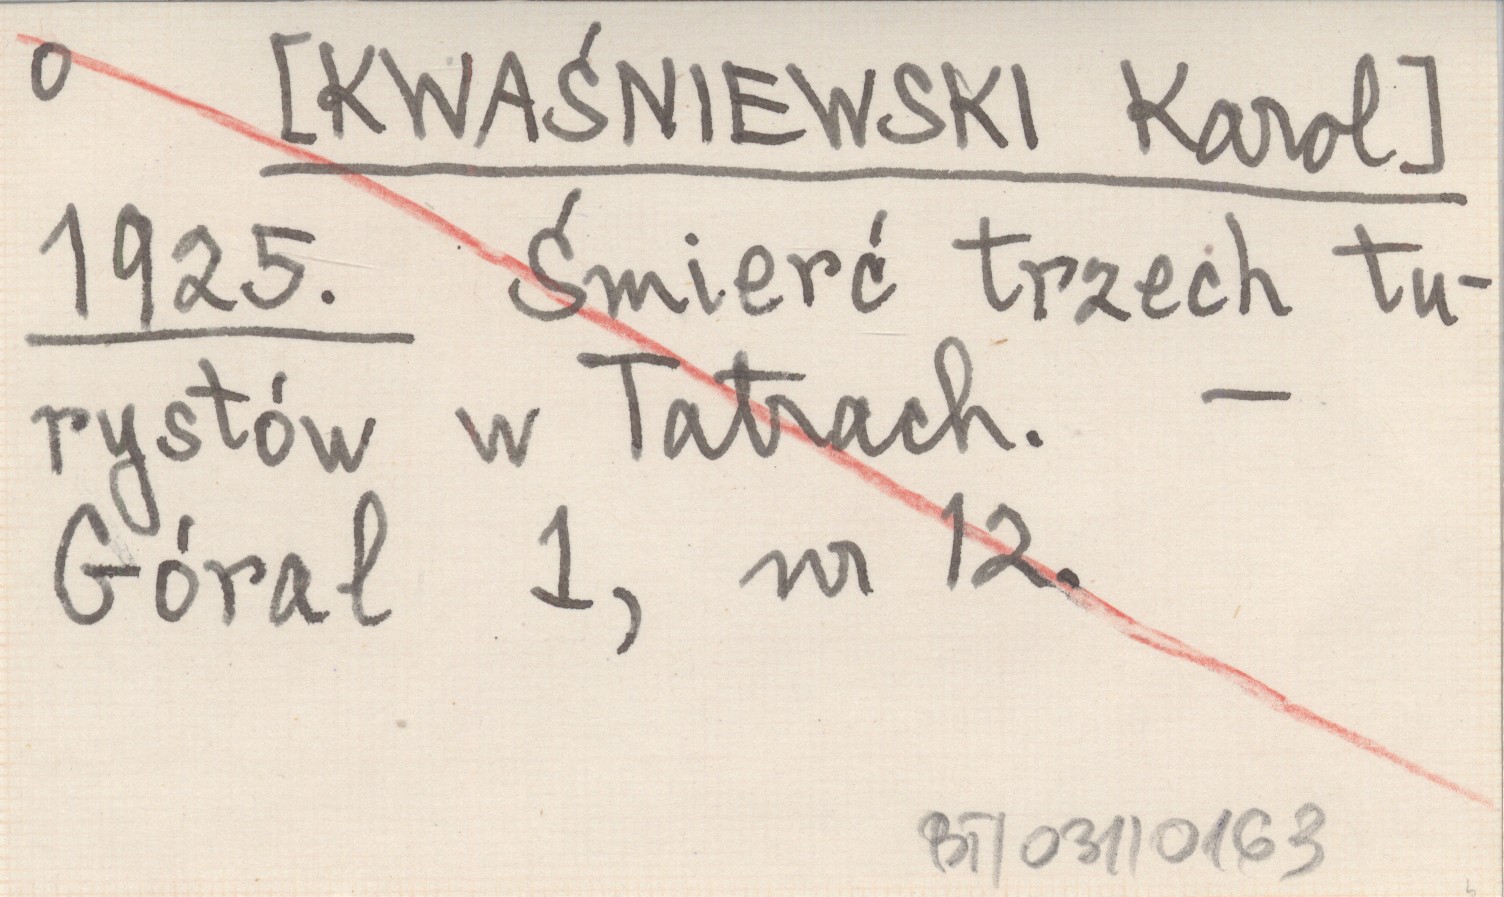 o [KWAŚNIEWSKI Karol]
1925. Śmierć trzech tu-
rystów w Tatrach. —
Góral 1, nr 12.
BT/031/0163